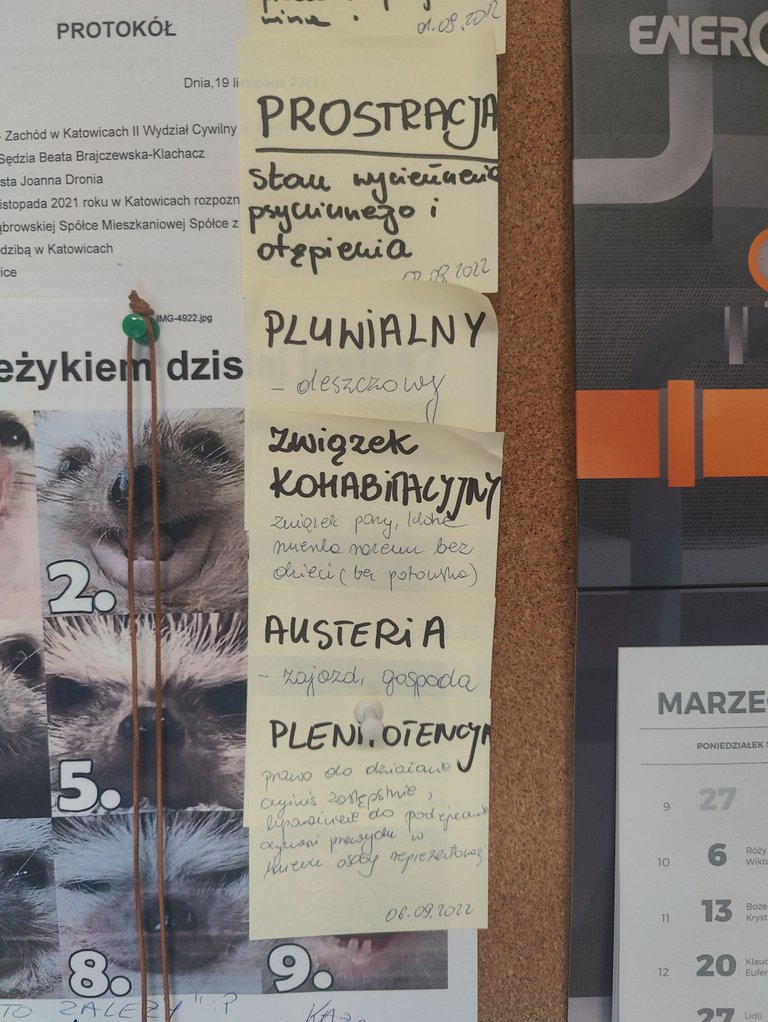 PROTOKÓŁ
Dnia, 19 listopada 2021 r
Zachód w Katowicach II Wydział Cywilny
Sędzia Beata Brajczewska-Klachacz
sta Joanna Dronia
istopada 2021 roku w Katowicach rozpozn
ąbrowskiej Spółce Mieszkaniowej Spółce z
dzibą w Katowicach
ice
IMG-4922.jpg
eżykiem dzis
2.
5.
8.
9.
TO ZALEŻY" :P
01.09.2022
PROSTRACJA
stan wycieńczenia
psychicznego i
otępienia
02.09.2022
PLUWIALNY
- deszczowy
ZWIĄZEK
KOHABITACYJNY
związek pary, które
mieszka razem bez
dzieci (bez potomstwa)
AUSTERIA
- zajazd, gospoda
PLENIPOTENCYJN
prawo do działania
czyimś zastępstwie,
do podejmowania
czynności prawnych w
imieniu osoby reprezentowanej
06.09.2022
ENERG
MARZEC
PONIEDZIAŁEK
9 27
10 6 Róży
Wikto
11 13 Boże
Kryst
12 20 Klaud
Eufem
27 Lidii